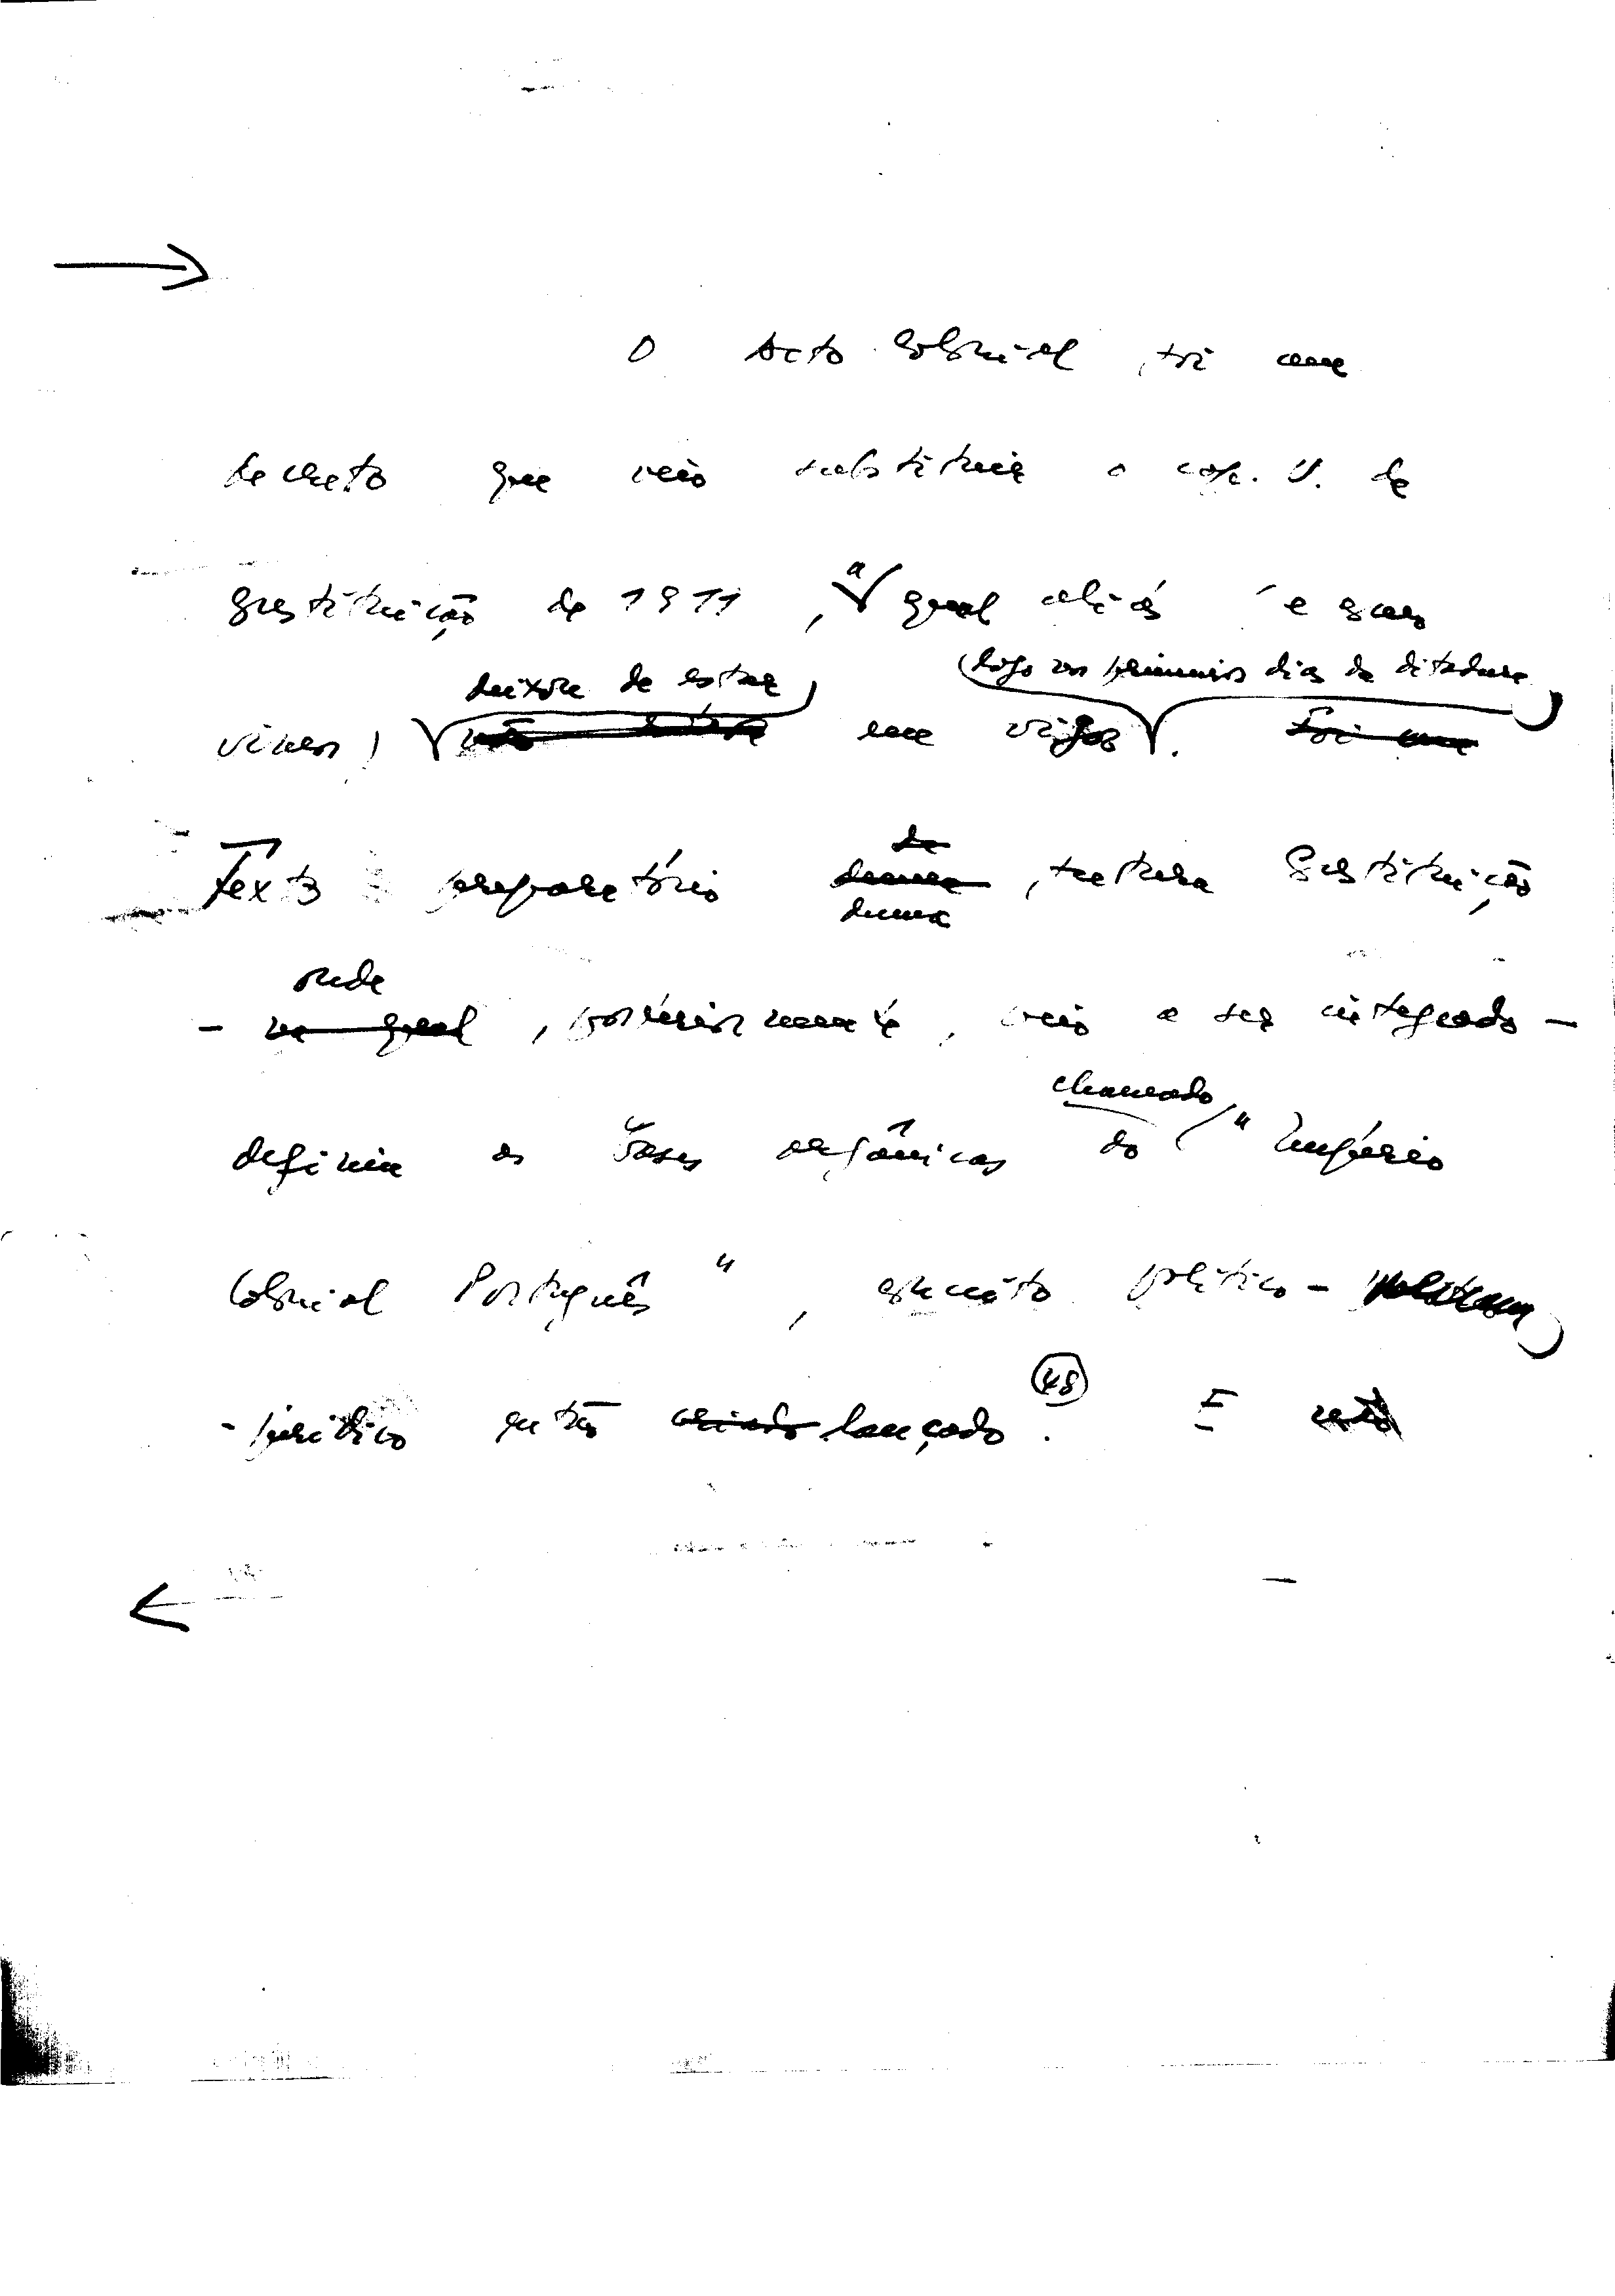 O Acto Colonial, foi um
decreto que veio substituir o cap. V. da
Constituição de 1911, a qual aliás
deixara de estar (logo nos primeiros dias da ditadura
vimos, em vigor. Foi uma
de
Texto preparatório duma, futura Constituição
duma
onde
- na qual, posteriormente, veio a ser integrado -
chamado
definia as bases orgânicas do "Império
Colonial Português", conceito político-
-jurídico então criado lançado. (48) E não